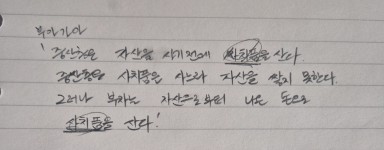 부자가 아
' 중산층은 자산을 사기전에 사치품을 산다.
중산층은 사치품을 사느라 자산을 쌓지 못한다.
그러나 부자는 자산으로부터 나온 돈으로
사치품을 산다!